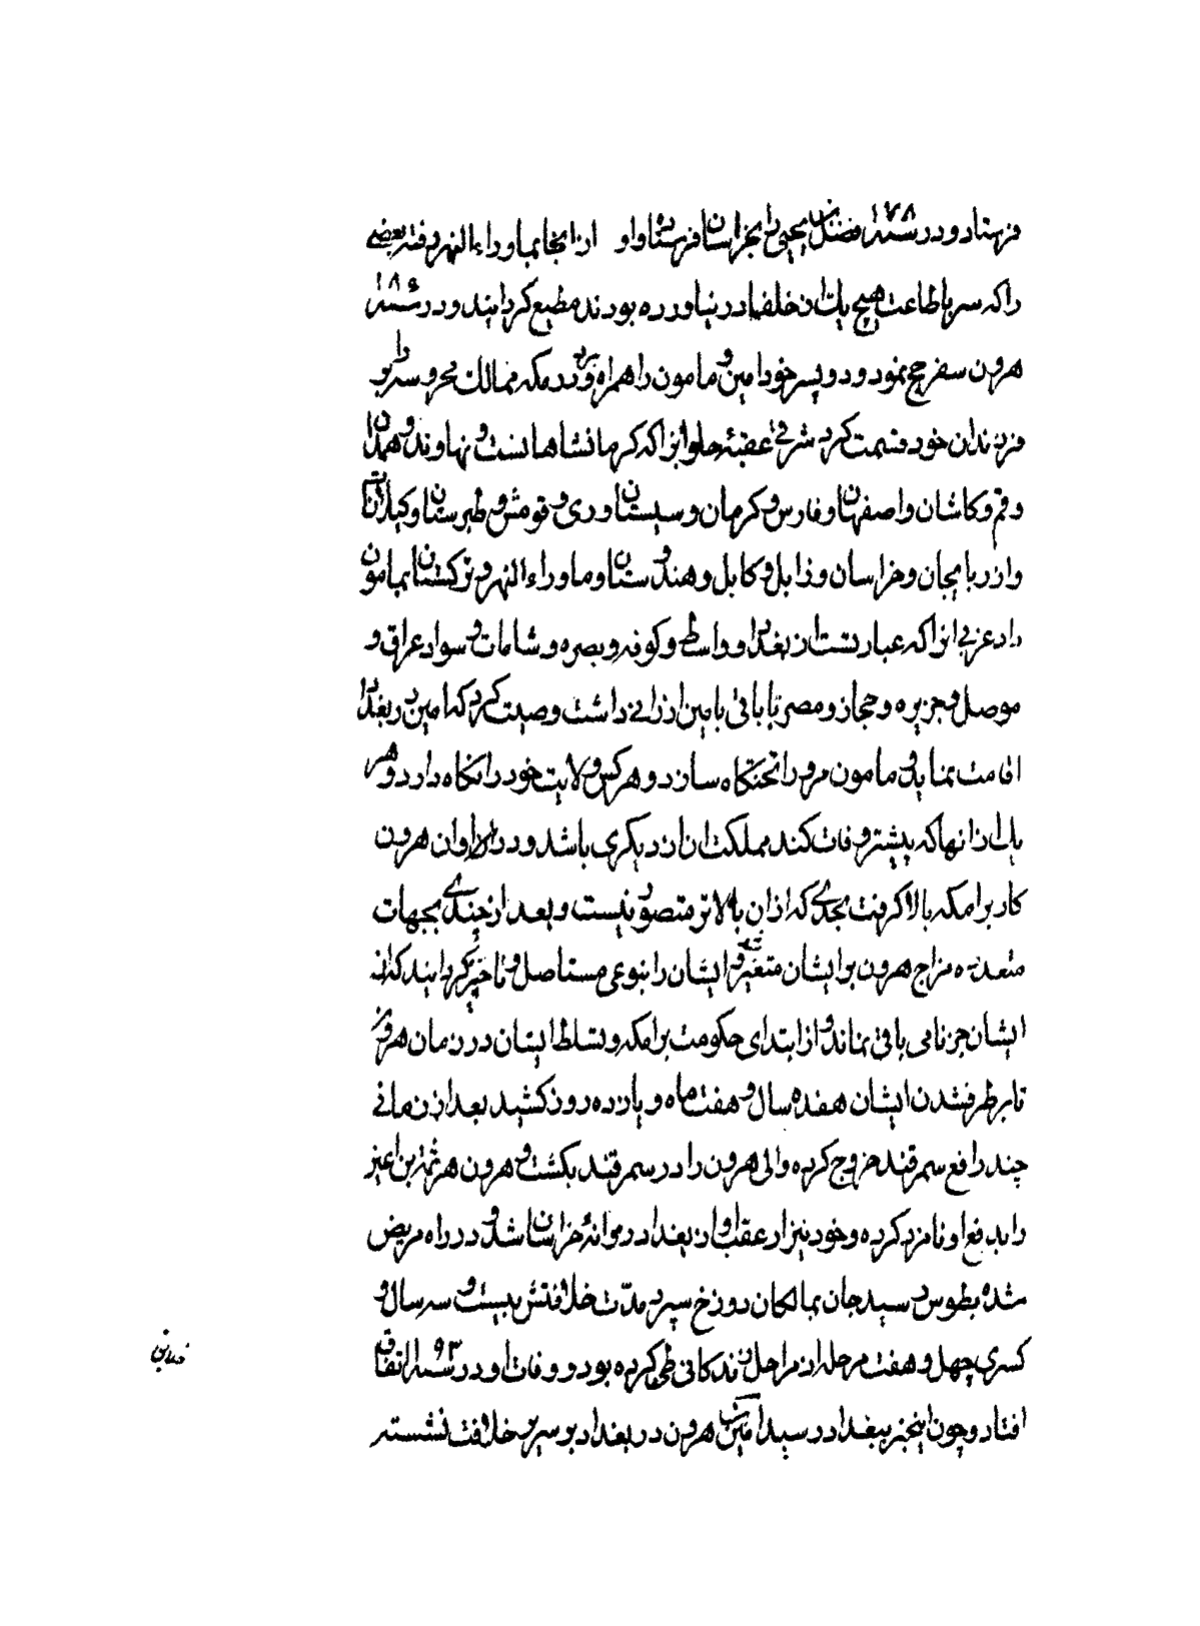 فرستاد و در سنه ۱۷۸ فضل بن یحیی را بخراسان فرستاد و او از انجا بماوراءالنهر رفته بعضی
را که سر باطاعت هیچ یك از خلفا در نیاورده بودند مطیع کردانید و در سنه ۱۸۶
هرون سفر حج نمود و دو پسر خود امین و مامون را همراه برد و در مکه ممالك محروسه را بر
فرزندان خود قسمت کرد شرقی عقبهٔ حلوان را که کرمانشاهانست و نهاوند و همدان
و قم و کاشان و اصفهان و فارس و کرمان و سیستان و ری و قومش و طبرستان و کیلانات
و اذربایجان و خراسان و زابل و کابل و هندوستان و ماوراءالنهر و ترکستان بمامون
داد غربی انرا که عبارتست از بغداد و واسط و کوفه و بصره و شامات و سواد عراق و
موصل و جزیره و حجاز و مصر تا باقی بامین ارزانی داشت وصیت کرد که امین در بغداد
اقامت نماید و مامون مرو را تختکاه سازد و هر کس ولایت خود را نکاه دارد و هر
یك از انها که پیشتر وفات کند مملکت از ان دیکری باشد و در اوان هرون
کار برامکه بالا کرفت بحدی که از ان بالاتر متصور نیست و بعد از چندی بجهات
متعدده مزاج هرون بر ایشان متغیر شد و ایشان را بنوعی مستاصل و ناچیز کردانید که از
ایشان جز نامی باقی نماند و از ابتدای حکومت برامکه و تسلط ایشان در زمان هرون
تا برطرف شدن ایشان هفده سال و هفت ماه و پازده روز کشید بعد از زمانی
چند رافع سمرقند خروج کرده والی هرون را در سمرقند بکشت و هرون هرثمة بن اعین
را بدفع او نامزد کرده و خود نیز از عقب او از بغداد روانهٔ خراسان شد و در راه مریض
شده بطوس رسید جان بمالکان دوزخ سپرد مدّت خلافتش بیست و سه سال و
کسری چهل و هفت مرحله از مراحل زندکانی طی کرده بود و وفات او در سنه ۱۹۳ اتفاق
افتاد و چون اینخبر ببغداد رسید امین بن هرون در بغداد بر سریر خلافت نشسته